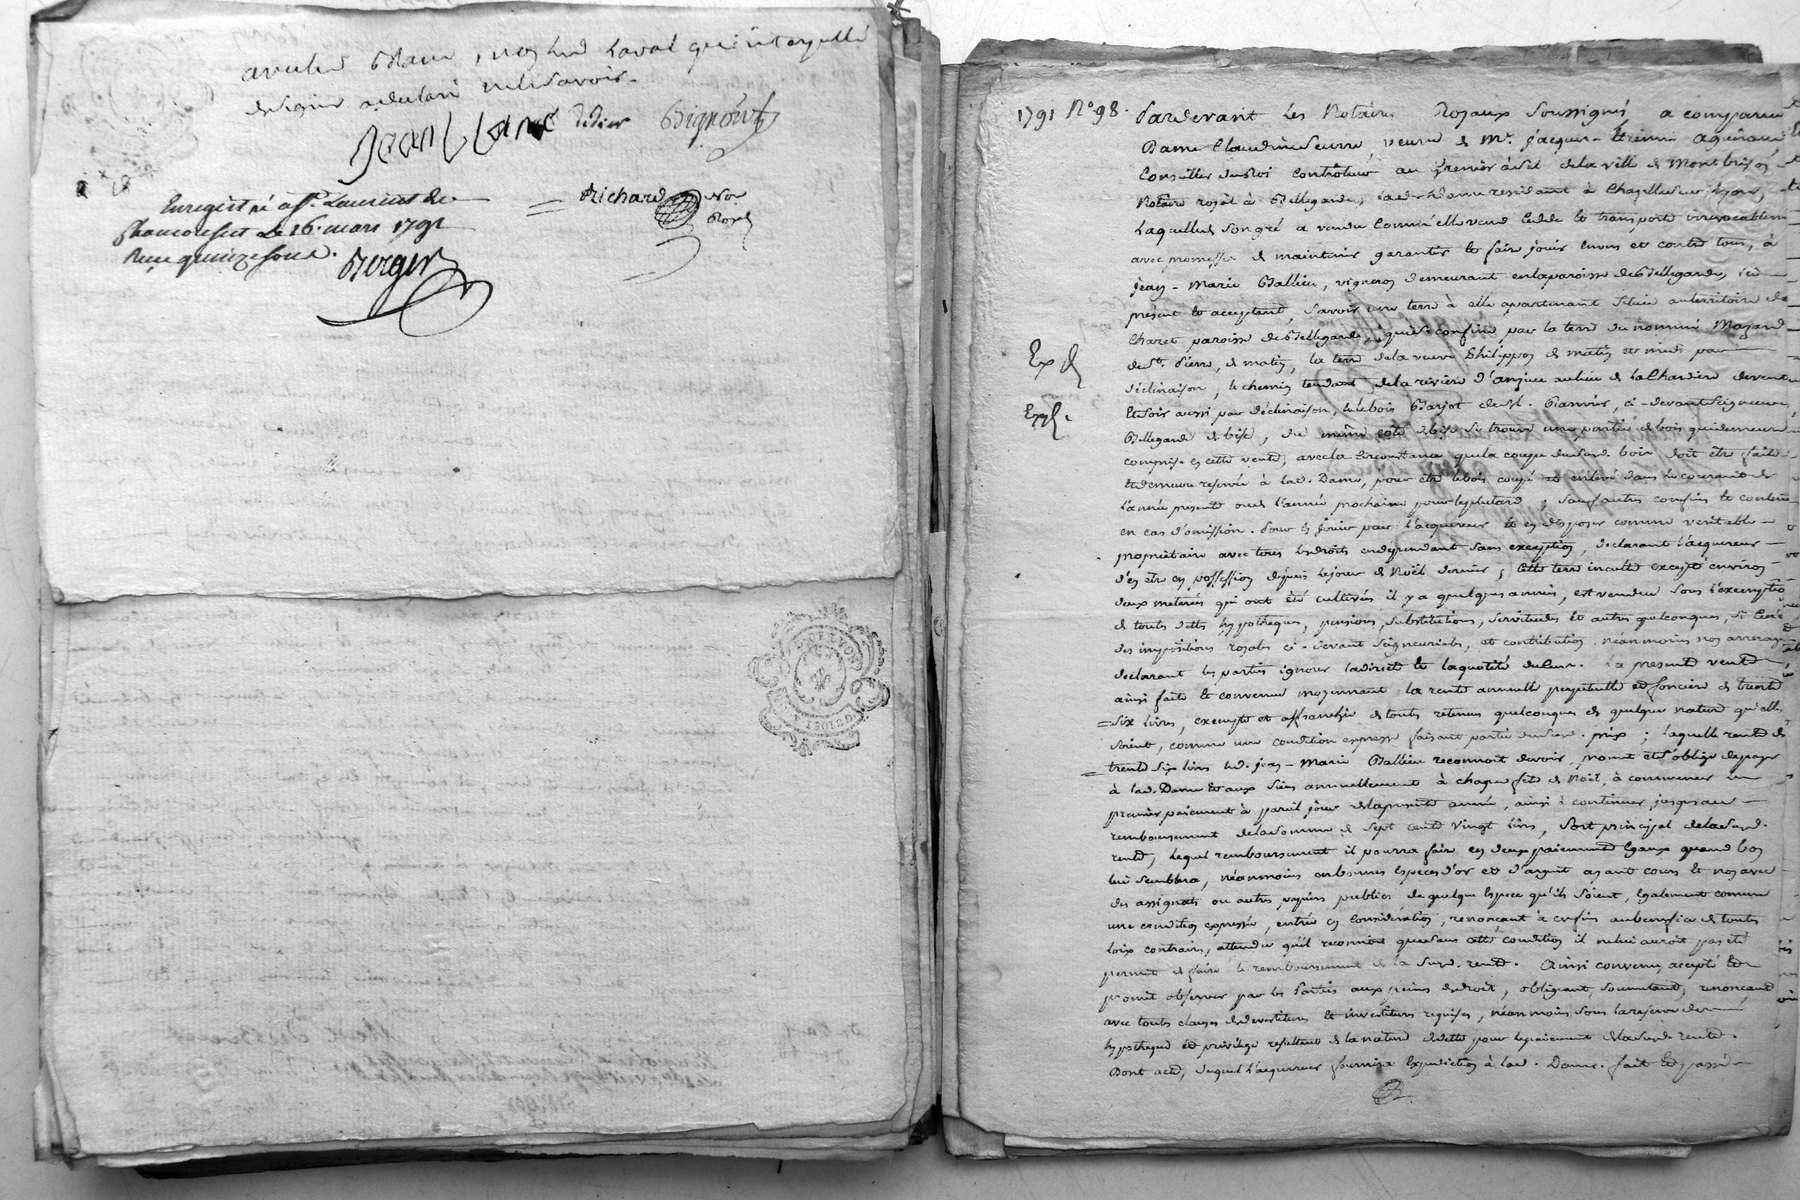 avec led blanc, nay led Laval qui interpellé
de signer a declaré ne le savoir.
Jean blanc didier Bignon
Richard No.re Royal
Enregistré a St. Laurent de
Chamousset Le 16. mars 1791
Reçu quinze sous.
Berger
1791 N.° 98.
Pardevant Les Notaires Royaux Soussignés, a comparu
Dame Claudine veuve de Mr. Jacques Etienne
Conseiller du Roi Controleur au Grenier à Sel de la ville de Montbrison
Notaire royal à Bellegarde, lad. Dame residant à Chazelles sur Lyon,
Laquelle de son gré a vendu comme elle vend cedde et transporte irrevocablement
avec promesse de maintenir garantir et faire jouir envers et contre tous, à
jean-Marie Ballieu, vigneron demeurant en la paroisse de Bellegarde, ici
present et acceptant, Savoir une terre à elle apartenant située au territoire de
Charet paroisse de Bellegarde, qui se confine par la terre du nommé
de St. Pierre, de matin, la terre de la veuve Philippon de matin et midi par
declinaison, le chemin tendant de la riviere d'anzieu au lieu de la Chardiere
Et soir aussi par declinaison, le bois de Mr. ci-devant Seigneur
Bellegarde de bise, du même coté de bise se trouve une partie de bois qui demeure
comprise en cette vente, avec la circonstance que la coupe dud. bois doit être faite
et demeure reservée à lad. Dame, pour être le bois coupé et enlevé dans le courant de
l'année presente ou de l'année prochaine pour le plus tard; sauf autres confins
en cas d'omission. Pour en jouir par l'acquereur et en disposer comme veritable
propriétaire avec tous les droits en dependant sans exception, declarant l'acquereur
d'en etre en possession depuis le jour de Noël dernier; cette terre inculte excepté environ
deux meterées qui ont été cultivées il y a quelques années, est vendue sous l'exemption
de toutes dettes hypotheques, pensions, substitutions, servitudes et autres quelconques, si ce n'est
des impositions royales ci-devant seigneuriales, et contribution, néanmoins non arreragés
declarant les parties ignorer la directe et la quotité du cens. La presente vente
ainsi faite et convenue moyennant la rente annuelle perpetuelle et fonciere de trente
Six livres, exempte et affranchie de toutes retenues quelconques de quelque nature qu'elles
soient, comme une condition expresse faisant partie dud. prix; laquelle rente de
trente six livres led. jean-Marie Ballieu reconnoit devoir, promet et s'oblige de payer
à lad. Dame et aux siens annuellement à chaque fête de Noël, à commencer le
premier paiement à pareil jour de la presente année, ainsi à continuer jusqu'au
remboursement de la somme de sept cent vingt livres, Sort principal de la susd.
rente, lequel remboursement il pourra faire en deux paiements Egaux quand bon
lui semblera, néanmoins en bonnes Especes d'or et d'argent ayant cours et non avec
des assignats ou autres papiers publics de quelque Espece qu'ils soient, Egalement comme
une condition expresse, entrée en consideration, renonçant à ces fins au benefice de toutes
loix contraires, attendu qu'il reconnoit que sans cette condition il ne lui auroit pas été
permis de faire le remboursement de la susd. rente. Ainsi convenu accepté et
promis observer par les Parties aux peines de droit, obligeant, soumettant, renonçant
avec toutes clauses de devestiture et investiture requises, néanmoins sous la reserve de
hypotheque et privilege resultant de la nature de dette pour le paiement de la susd. rente.
Dont acte, duquel l'acquereur fournira Expedition à lad. Dame. fait et passé